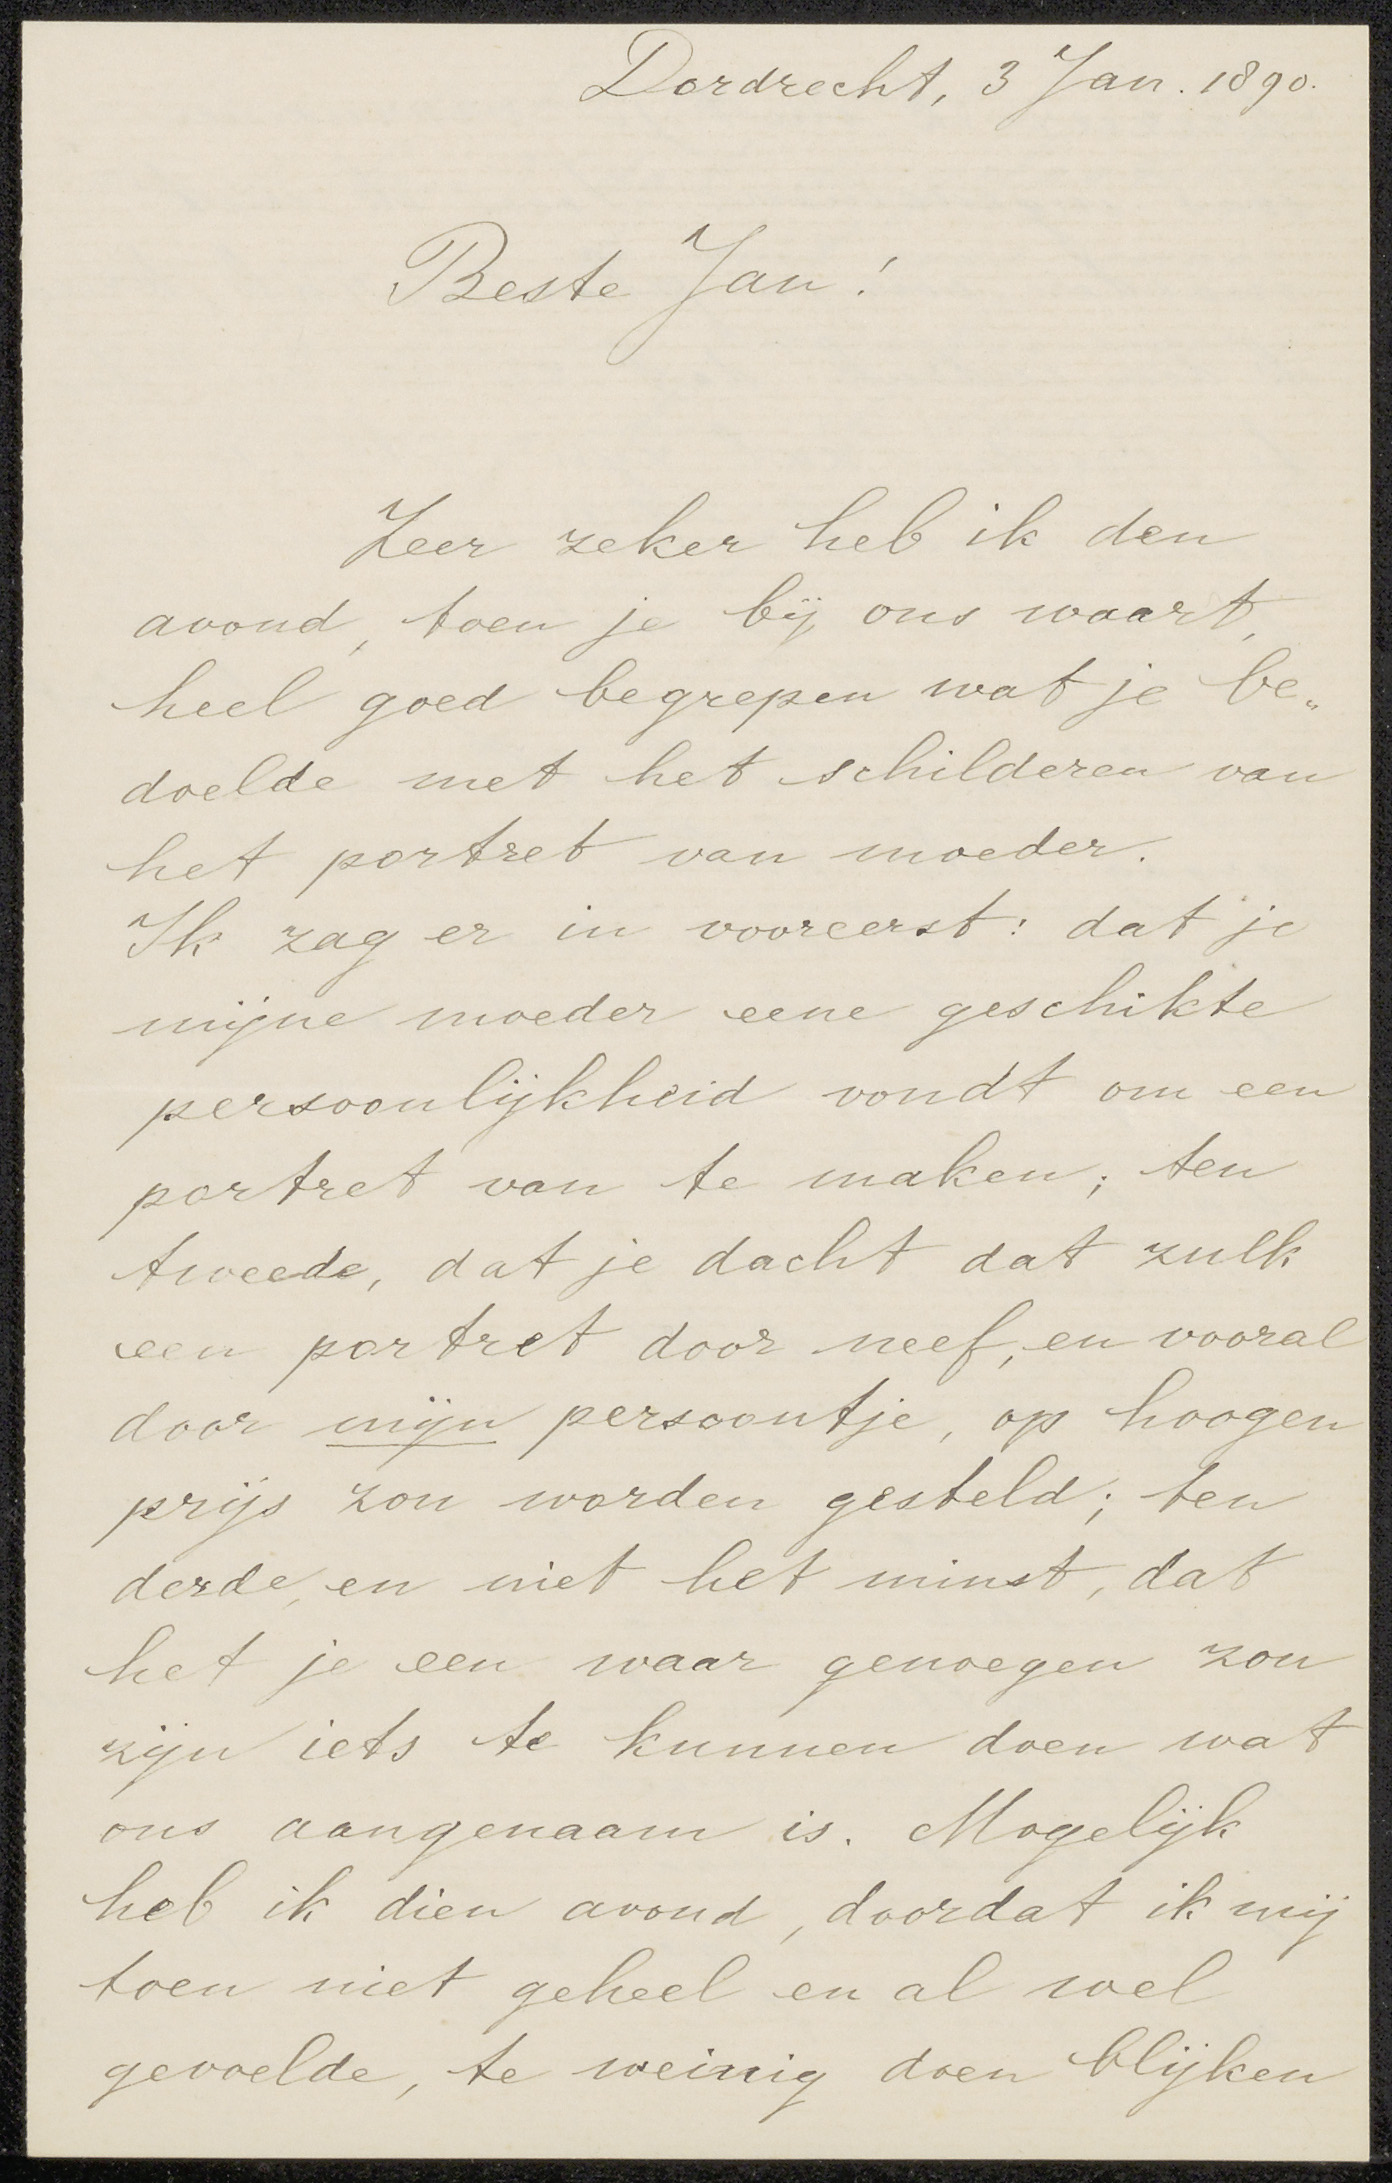 Dordrecht, 3 Jan. 1890.
Beste Jan!
Zeer zeker heb ik den
avond, toen je bij ons waart,
heel goed begrepen wat je be„
doelde met het schilderen van
het portret van moeder.
Ik zag er in vooreerst: dat je
mijne moeder eene geschikte
persoonlijkheid vondt om een
portret van te maken; ten
tweede, dat je dacht dat zulk
een portret door neef, en vooral
door mijn persoontje, op hoogen
prijs zou worden gesteld; ten
derde, en niet het minst, dat
het je een waar genoegen zou
zijn iets te kunnen doen wat
ons aangenaam is. Mogelijk
heb ik dien avond, doordat ik mij
toen niet geheel en al wel
gevoelde, te weinig doen blijken